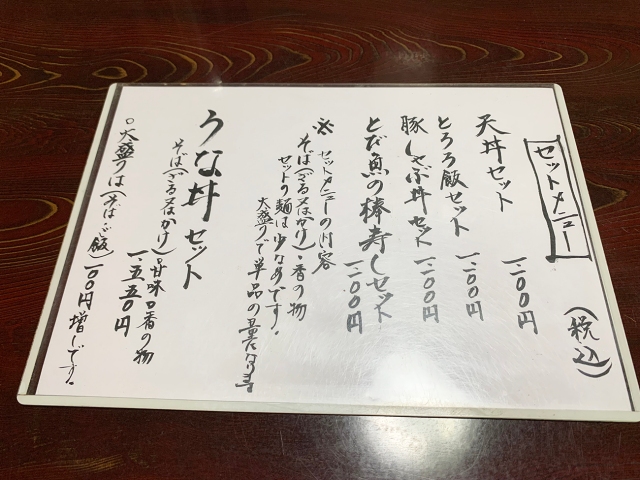 セットメニュー
(税込)
天丼セット 一二〇〇円
とろろ飯セット 一二〇〇円
豚しゃぶ丼セット 一二〇〇円
とび魚の棒寿しセット 一二〇〇円
※セットメニューの内容
そば(ざる又はかけ)・香の物
セットの麺は少なめです。
大盛りで単品の量になります
うな丼セット
そば(ざる又はかけ)・甘味・香の物
一、五五〇円
○大盛りは(そば・ご飯)一〇〇円増しです。